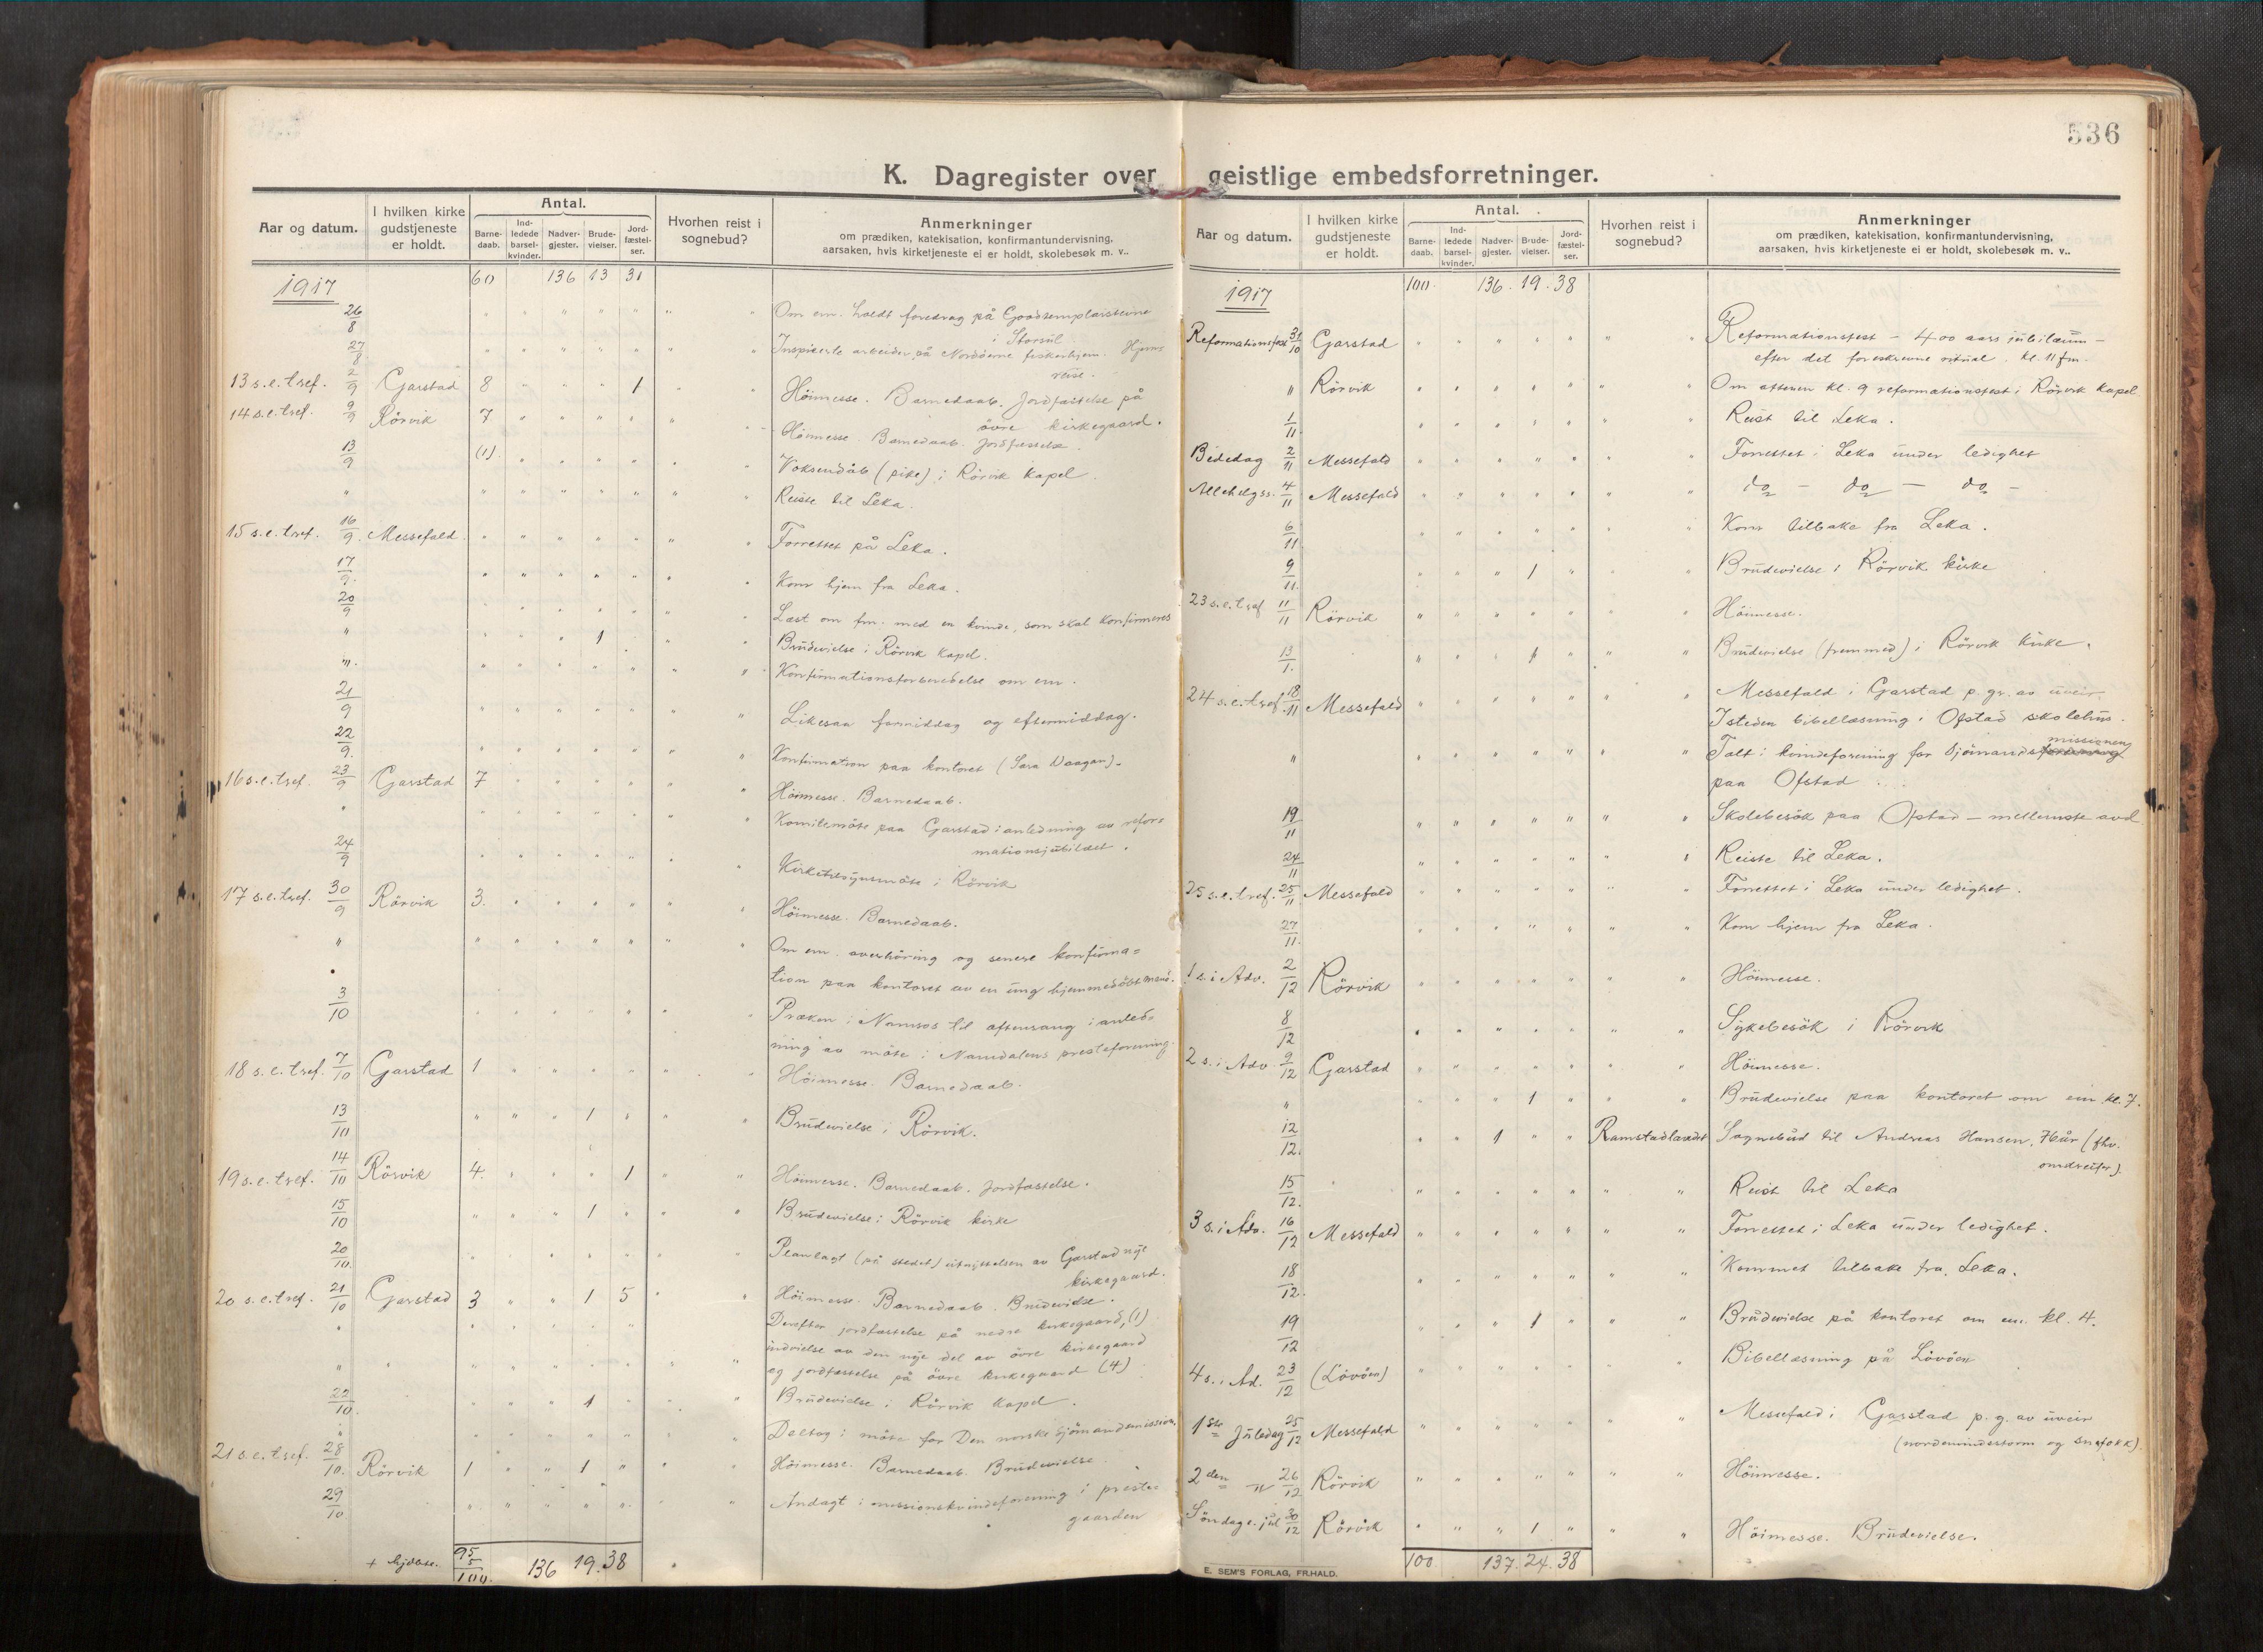 536
K. Dagregister over geistlige embedsforretninger.
Aar og datum. | I hvilken kirke gudstjeneste er holdt. | Antal. | Barne-daab. | Ind-ledede barsel-kvinder. | Nadver-gjester. | Brude-vielser. | Jord-fæstel-ser. | Hvorhen reist i sognebud? | Anmerkninger om prædiken, katekisation, konfirmantundervisning, aarsaken, hvis kirketjeneste ei er holdt, skolebesøk m. v..
1917 60 136 13 31
26/8 Om em. holdt foredrag på Goodtemplarstevne
i Storsül
27/8 Inspicerte arbeider på Nordöerne fiskerhjem. Hjem
reise.
13 s.e.tref. 2/9 Garstad 8 1 Höimesse. Barnedaab. Jordfæstelse på
övre kirkegaard.
14 s.e.tref. 9/9 Rörvik 7 Höimesse. Barnedaab. Jordfæstelse.
13/9 (1) Voksendåb (pike) i Rörvik Kapel.
" Reiste til Leka.
15 s.e.tref. 16/9 Messefald. Forrettet på Leka.
17/9. Kom hjem fra Leka.
20/9 Læst om fm. med en kvinde, som skal konfirmeres
" 1 Brüdevielse i Rörvik Kapel.
" Konfirmationsforberedelse om em.
21/9 Likesaa formiddag og eftermiddag.
22/9. Konfirmation paa kontoret (Sara Waagan).
16 s.e.tref. 23/9 Garstad 7 Höimesse. Barnedaab.
" Komitemöte paa Garstad i anledning av refor=
mationsjübilæet.
24/9 Kirketilsynsmöte i Rörvik
17 s.e.tref. 30/9 Rörvik 3. Höimesse. Barnedaab.
" Om em. overhöring og senere konfirma=
tion paa kontoret av en üng hjemmedöbt mand.
3/10 Præken i Namsos til aftensang i anled=
ning av möte i Namdalens presteforening.
18 s.e.tref. 7/10 Garstad 1 Höimesse. Barnedaab.
13/10 1 Brüdevielse i Rörvik.
19 s.e.tref. 14/10 Rörvik 4. 1 Höimesse. Barnedaab. Jordfæstelse.
15/10 1 Brüdevielse i Rörvik kirke
20/10. Planlagt (på stedet) utvittelsen av Garstad nye
kirkegaard.
20 s.e.tref. 21/10 Garstad 3 1 5 Höimesse. Barnedaab. Brüdevielse.
" Derefter jordfæstelse på nedre kirkegaard, (1)
indvielse av den nye del av övre kirkegaard
" og jordfæstelse på övre kirkegaard (4)
22/10. 1 Brüdevielse i Rörvik Kapel.
" Deltog i möte for Den norske sjömandsmission.
21 s.e.tref. 28/10. Rörvik 1 1 Höimesse. Barnedaab. Brüdevielse.
29/10 Andagt i missionskvindeforening i preste=
gaarden
+ hjdöbte. 95 5 100. 136 19. 38
Aar og datum. | I hvilken kirke gudstjeneste er holdt. | Antal. | Barne-daab. | Ind-ledede barsel-kvinder. | Nadver-gjester. | Brude-vielser. | Jord-fæstel-ser. | Hvorhen reist i sognebud? | Anmerkninger om prædiken, katekisation, konfirmantundervisning, aarsaken, hvis kirketjeneste ei er holdt, skolebesøk m. v..
1917 100. 136. 19. 38
Reformationsfest 31/10 Garstad Reformationsfest – 400 aars jübilæum –
efter det foreskrevne ritual. kl. 11 fm.
" Rörvik Om aftenen kl. 9 reformationsfest i Rörvik Kapel
1/11. Reist til Leka.
Bededag 2/11 Messefald Forrettet i Leka ünder ledighet
Allehelgss. 4/11 Messefald do – do – do –
6/11 Kom tilbake fra Leka.
9/11. 1 Brüdevielse i Rörvik kirke
23 s.e.tref 11/11 Rörvik Höimesse.
13/1. 1 Brüdevielse (fremmed) i Rörvik kirke.
24 s.e.tref 18/11 Messefald Messefald i Garstad p. gr. av üveir.
Isteden bibellæsning i Ofstad skolehüs.
" Talt i kvindeforening for Sjömandsmissionen
paa Ofstad
19/11 Skolebesök paa Ofstad – mellemste avd.
24/11 Reiste til Leka.
25 s.e.tref. 25/11 Messefald Forrettet i Leka ünder ledighet.
27/11. Kom hjem fra Leka.
1 s. i Adv. 2/12 Rörvik Höimesse.
8/12 Sykebesök i Rörvik
2 s. i Adv 9/12 Garstad Höimesse.
" 1 Brüdevielse paa kontoret om em kl. 7.
12/12. 1 Ramstadlandet Sognebüd til Andreas Hansen, 76 år (fhv.
omdreifer).
15/12. Reist til Leka
3 s. i Adv. 16/12 Messefald Forrettet i Leka ünder ledighet.
18/12. Kommet tilbake fra Leka.
19/12 1 Brüdevielse på kontoret om em. kl. 4.
4 s. i Ad. 23/12 (Lövöen) Bibellæsning på Lövöen
1ste Jüledag 25/12 Messefald Messefald i Garstad p. g. av üveir
(nordenvindsstorm og snefokk).
2den " 26/12 Rörvik Höimesse.
Söndag e. jul 30/12 Rörvik 1 Höimesse. Brüdevielse.
100 137. 24. 38
E. SEM'S FORLAG, FR.HALD.